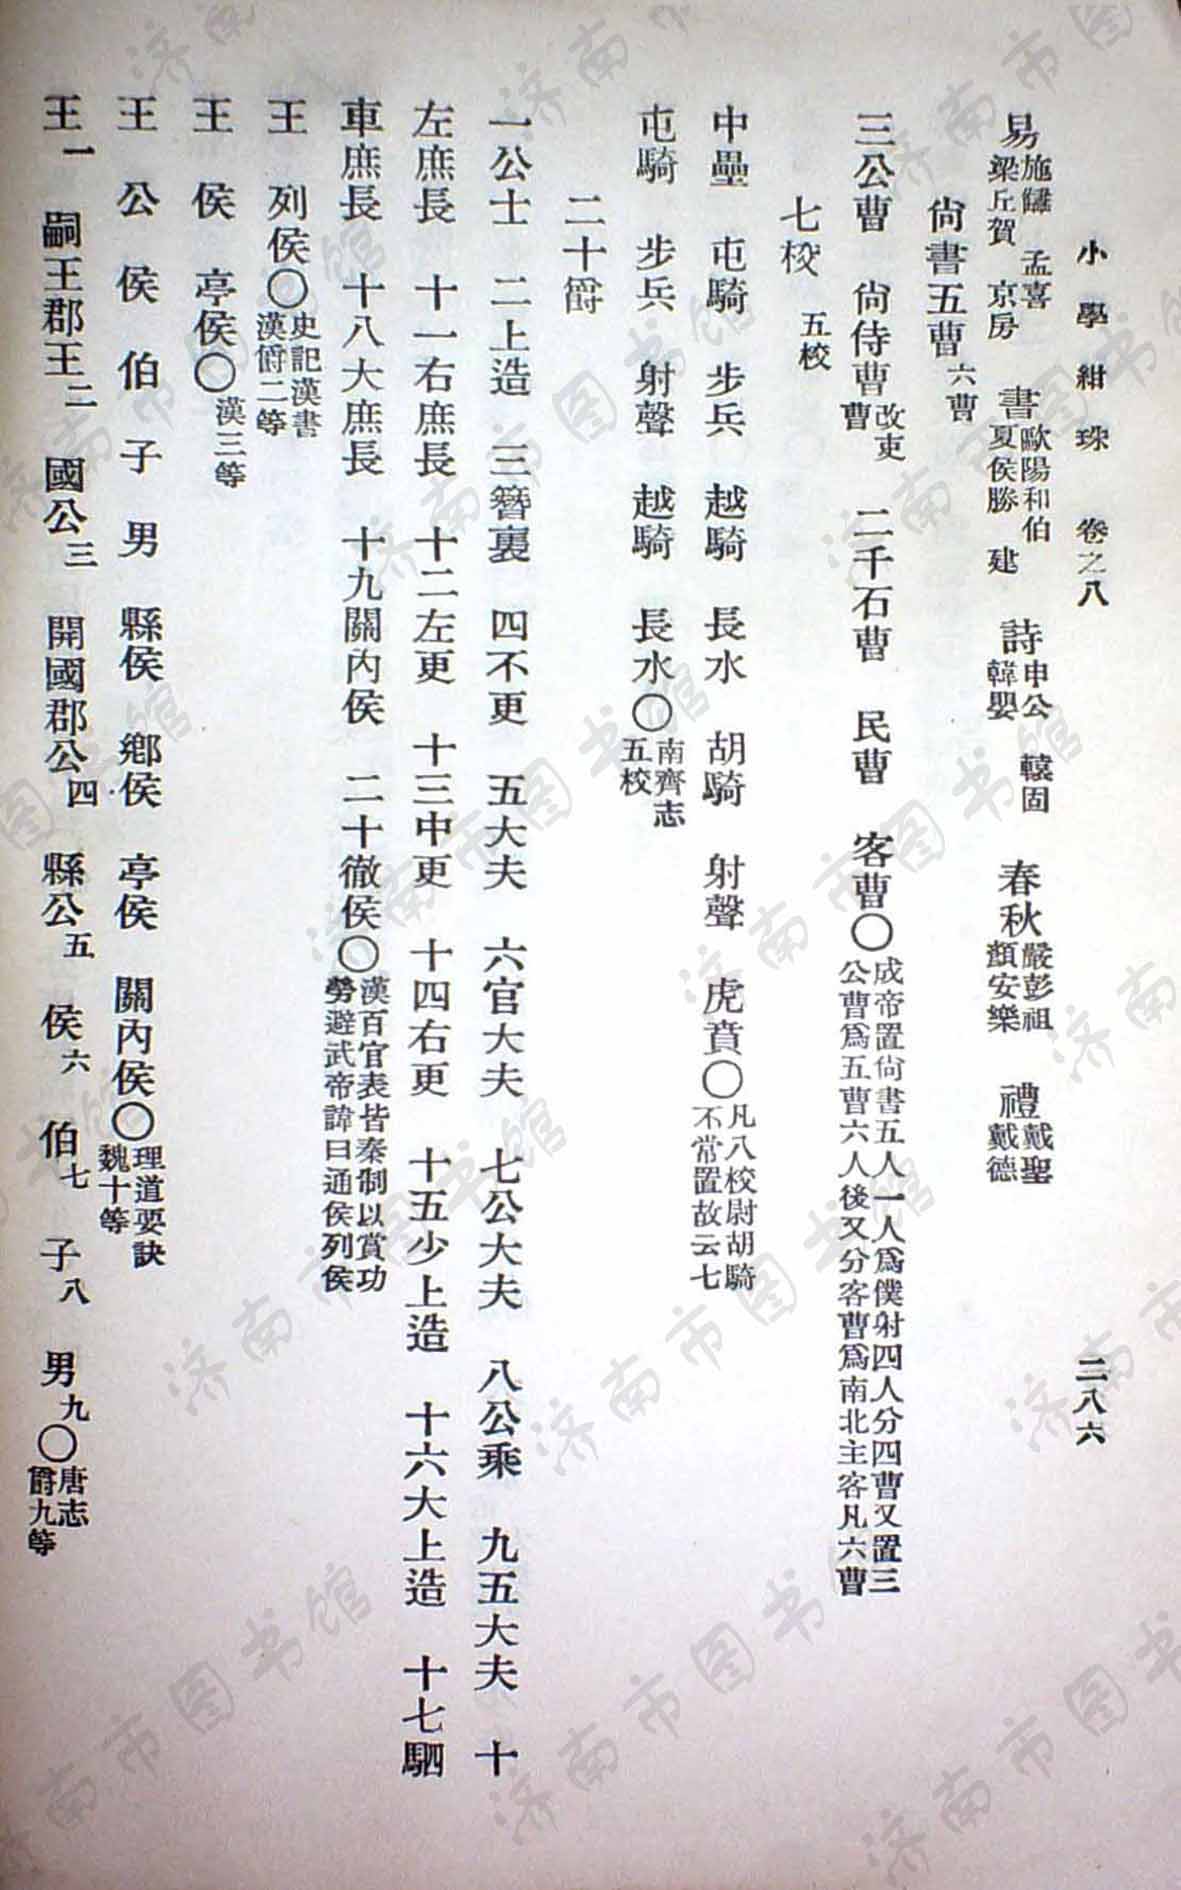 小學紺珠 卷之八 二八六
易施讎 孟喜梁丘賀 京房 書歐陽和伯夏侯勝 建 詩申公 轅固韓嬰 春秋嚴彭祖顏安樂 禮戴聖戴德
尙書五曹六曹
三公曹 尙侍曹改吏曹 二千石曹 民曹 客曹〇成帝置尙書五人一人爲僕射四人分四曹又置三公曹爲五曹六人後又分客曹爲南北主客凡六曹
七校 五校
中壘 屯騎 步兵 越騎 長水 胡騎 射聲 虎賁〇凡八校尉胡騎不常置故云七
屯騎 步兵 射聲 越騎 長水〇南齊志五校
二十爵
一公士 二上造 三簪裏 四不更 五大夫 六官大夫 七公大夫 八公乘 九五大夫 十
左庶長 十一右庶長 十二左更 十三中更 十四右更 十五少上造 十六大上造 十七駟
車庶長 十八大庶長 十九關內侯 二十徹侯〇漢百官表皆秦制以賞功勞避武帝諱曰通侯列侯
王 列侯〇史記漢書漢爵二等
王 侯 亭侯〇漢三等
王 公 侯 伯 子 男 縣侯 鄉侯 亭侯 關內侯〇理道要訣魏十等
王一 嗣王郡王二 國公三 開國郡公四 縣公五 侯六 伯七 子八 男九〇唐志爵九等
济南市图书馆